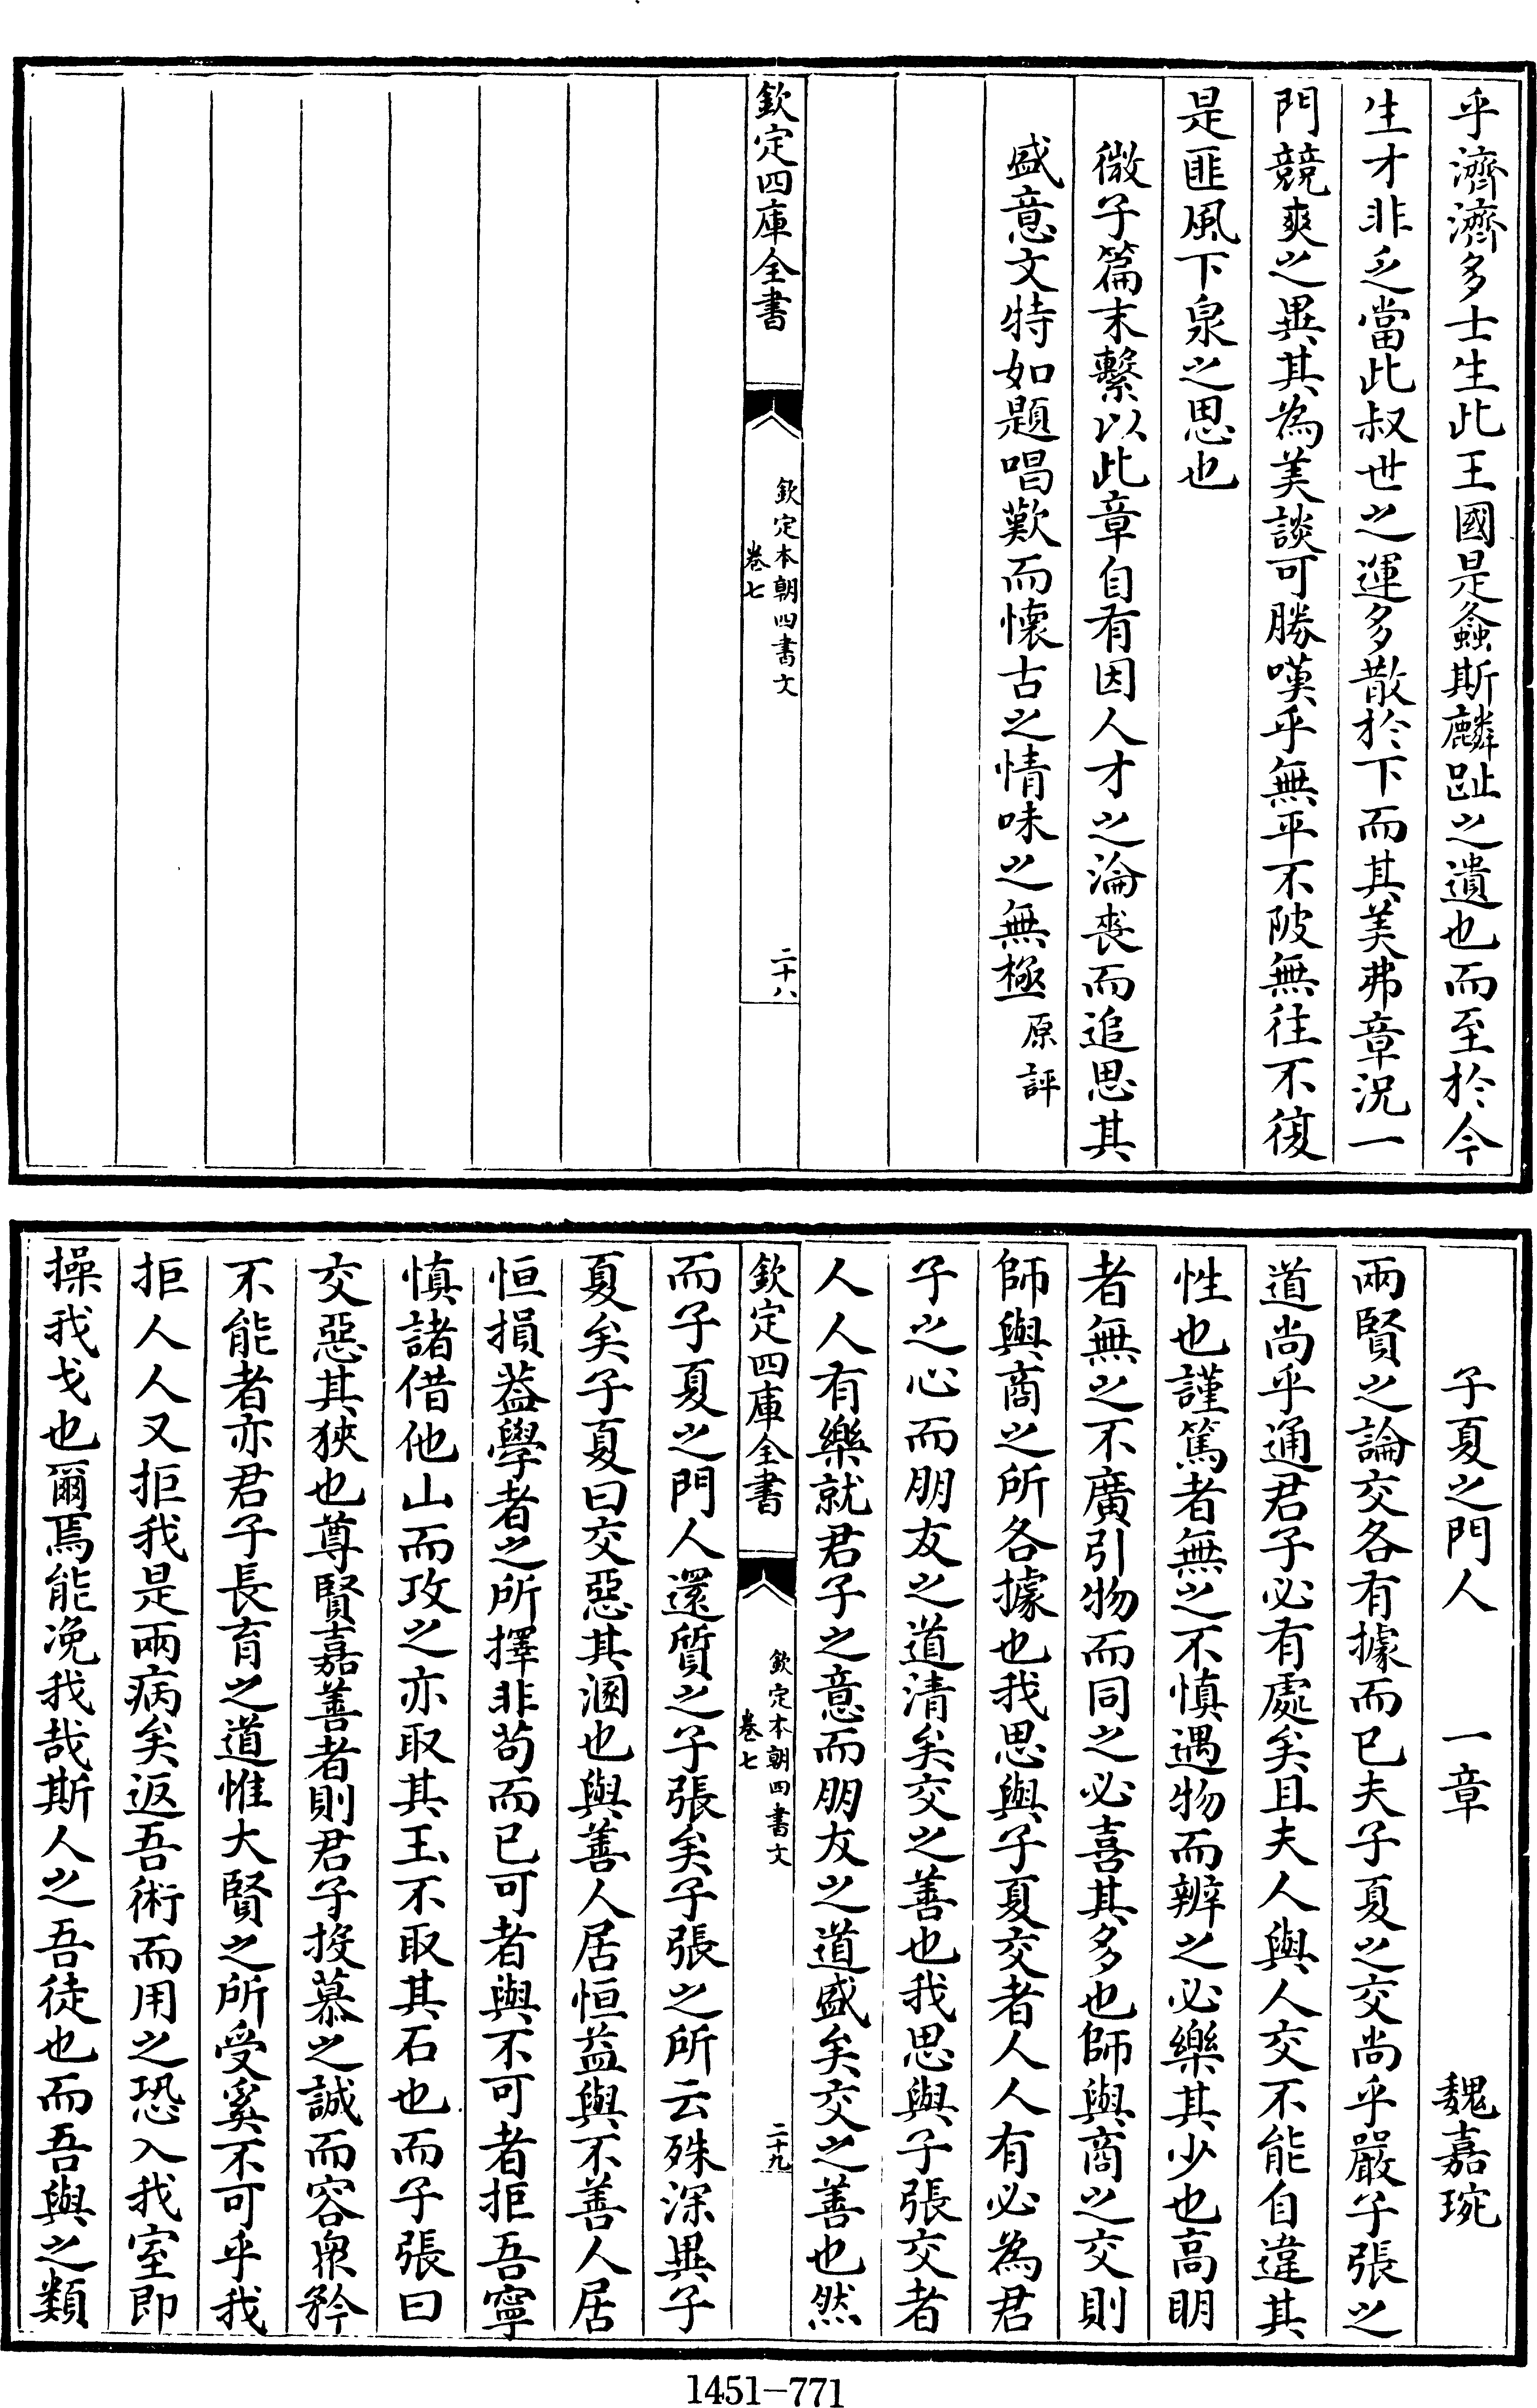 乎濟濟多士生此王國是螽斯麟趾之遺也而至於今
生才非乏當此叔世之運多散於下而其美弗章況一
門競爽之異其為美談可勝嘆乎無平不陂無往不復
是匪風下泉之思也
微子篇末繫以此章自有因人才之淪喪而追思其
盛意文特如題唱歎而懷古之情味之無極 原評
欽定四庫全書
欽定本朝四書文
卷七
二十八
子夏之門人 一章 魏嘉琬
兩賢之論交各有據而已夫子夏之交尚乎嚴子張之
道尚乎通君子必有處矣且夫人與人交不能自違其
性也謹篤者無之不慎遇物而辨之必樂其少也高明
者無之不廣引物而同之必喜其多也師與商之交則
師與商之所各據也我思與子夏交者人人有必為君
子之心而朋友之道清矣交之善也我思與子張交者
人人有樂就君子之意而朋友之道盛矣交之善也然
欽定四庫全書
欽定本朝四書文
卷七
二十九
而子夏之門人還質之子張矣子張之所云殊深異子
夏矣子夏曰交惡其溷也與善人居恒益與不善人居
恒損葢學者之所擇非苟而已可者與不可者拒吾寧
慎諸借他山而攻之亦取其玉不取其石也而子張曰
交惡其狹也尊賢嘉善者則君子投慕之誠而容衆矜
不能者亦君子長育之道惟大賢之所受奚不可乎我
拒人人又拒我是兩病矣返吾術而用之恐入我室即
操我戈也爾焉能浼我哉斯人之吾徒也而吾與之類
1451-771